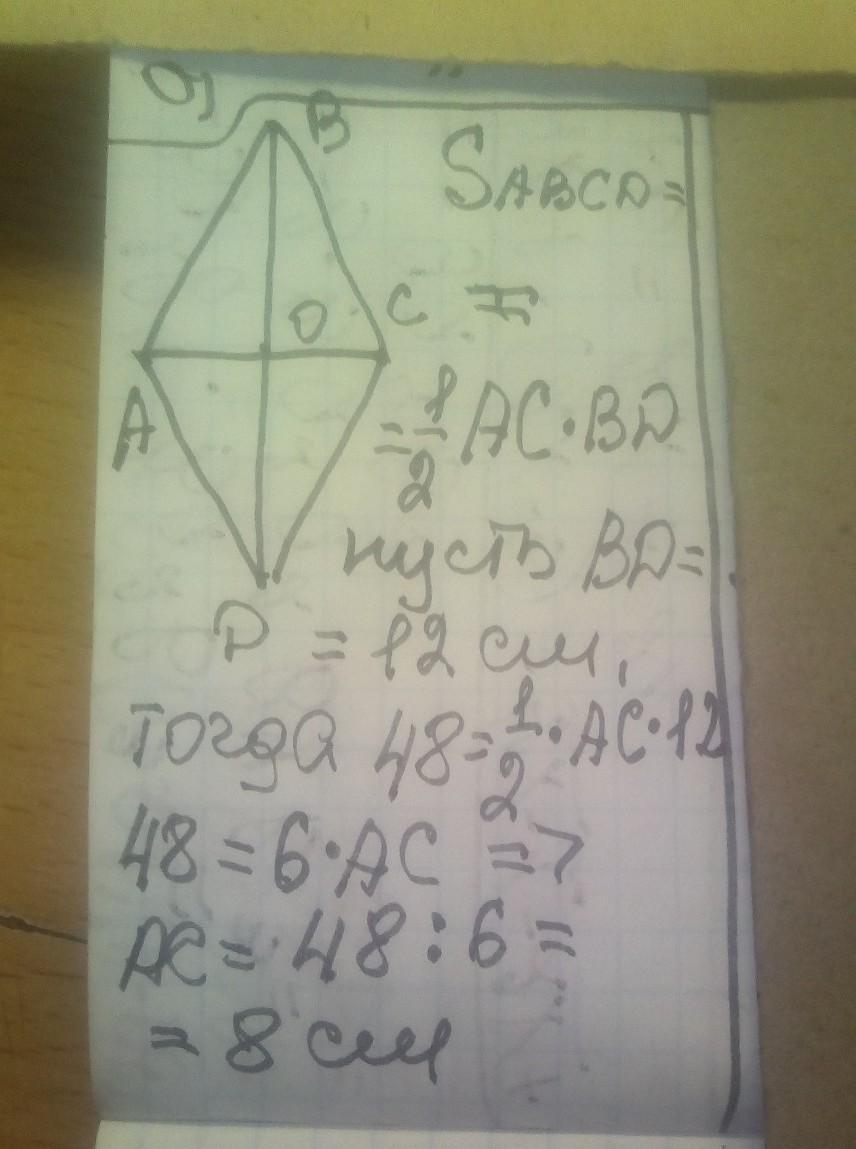 B
S ABCD =
O C =
A
= 1/2 AC · BD
пусть BD =
D = 12 см,
Тогда 48 = 1/2 · AC · 12
48 = 6 · AC =>
AC = 48 : 6 =
= 8 см